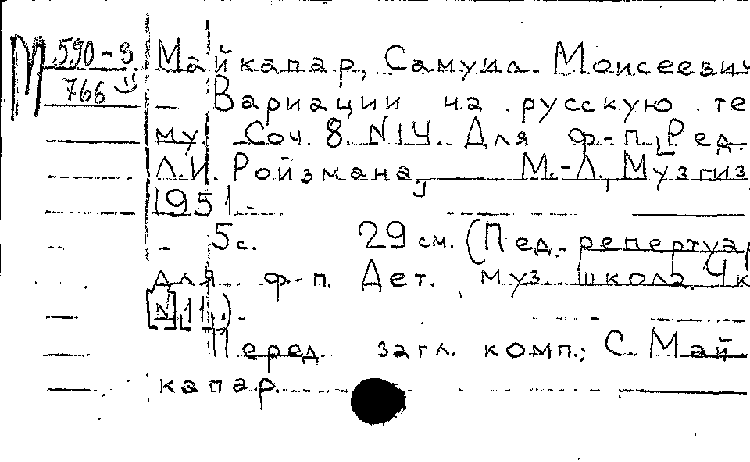 М 590-3 Майкапар, Самуил Моисеевич
766 Вариации на русскую те
му. Соч. 8 N14. Для ф-п. [Ред.
Л.И. Ройзмана, М.-Л., Музгиз
1951.
5с. 29 см. (Пед. репертуар
для ф-п. Дет. муз. школа. 4к
[N11]).
Перед загл. комп.: С. Май
капар.